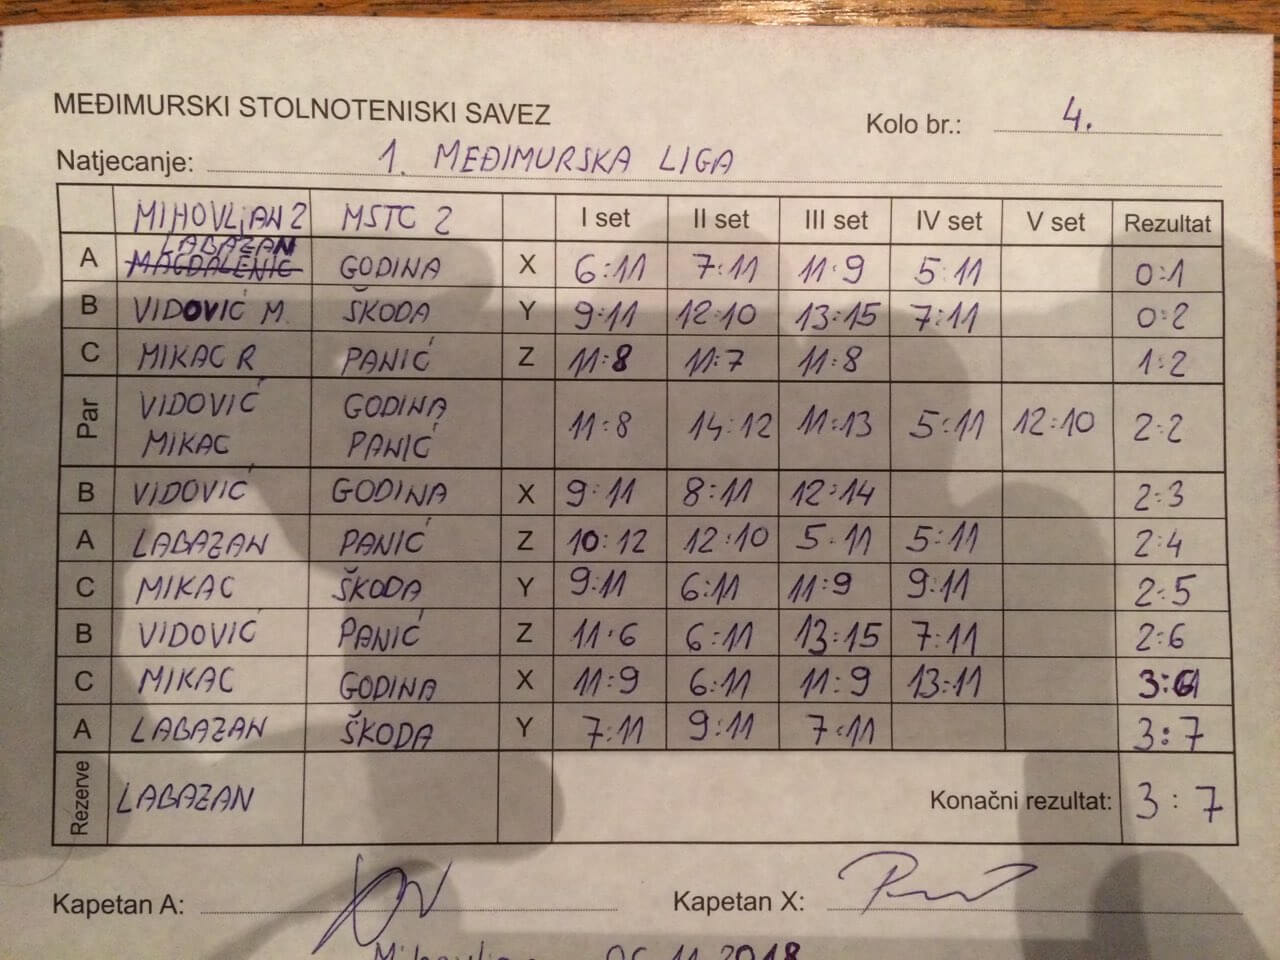 MEĐIMURSKI STOLNOTENISKI SAVEZ
Kolo br.: 4.
Natjecanje: 1. MEĐIMURSKA LIGA
MIHOVLjAN 2 MSTC 2 I set II set III set IV set V set Rezultat
LABAZAN
A MAGDALENIĆ GODINA X 6:11 7:11 11:9 5:11 0:1
B VIDOVIĆ M. ŠKODA Y 9:11 12:10 13:15 7:11 0:2
C MIKAC R PANIĆ Z 11:8 11:7 11:8 1:2
Par VIDOVIĆ GODINA 11:8 14:12 11:13 5:11 12:10 2:2
MIKAC PANIĆ
B VIDOVIĆ GODINA X 9:11 8:11 12:14 2:3
A LABAZAN PANIĆ Z 10:12 12:10 5:11 5:11 2:4
C MIKAC ŠKODA Y 9:11 6:11 11:9 9:11 2:5
B VIDOVIĆ PANIĆ Z 11:6 6:11 13:15 7:11 2:6
C MIKAC GODINA X 11:9 6:11 11:9 13:11 3:6
A LABAZAN ŠKODA Y 7:11 9:11 7:11 3:7
Rezerve LABAZAN Konačni rezultat: 3:7
Kapetan A: Kapetan X:
06.11.2018